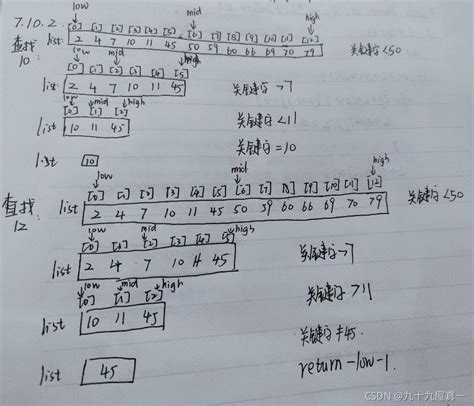 low mid high
7.10.2. [0] [1] [2] [3] [4] [5] [6] [7] [8] [9] [10] [11] [12]
查找 list 2 4 7 10 11 45 50 59 60 66 69 70 79 关键字<50
10: low mid high
[0] [1] [2] [3] [4] [5]
list 2 4 7 10 11 45 关键字>7
low mid high
[0] [1] [2]
list 10 11 45 关键字<11
关键字=10
list 10
low mid high
[0] [1] [2] [3] [4] [5] [6] [7] [8] [9] [10] [11] [12]
查找 list 2 4 7 10 11 45 50 59 60 66 69 70 79 关键字<50
12 low mid high
[0] [1] [2] [3] [4] [5]
list 2 4 7 10 11 45 关键字>7
low mid high
[0] [1] [2]
list 10 11 45 关键字>11
关键字≠45.
list 45 return -low-1.
CSDN @九十九屋真一